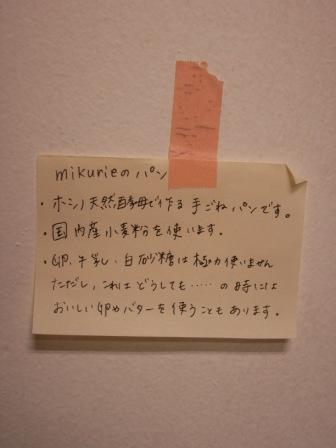 mikurieのパン
・ホシノ天然酵母で作る手ごねパンです。
・国内産小麦粉を使います。
・卵、牛乳、白砂糖は極力使いません
ただし、これはどうしても・・・・・の時には
おいしい卵やバターを使うこともあります。